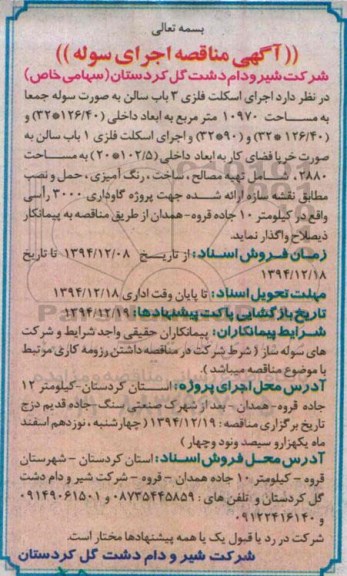 بسمه تعالی
((آگهی مناقصه اجرای سوله))
شرکت شیر و دام دشت گل کردستان (سهامی خاص)
در نظر دارد اجرای اسکلت فلزی ۳ باب سالن به صورت سوله جمعا
به مساحت ۱۰۹۷۰ متر مربع به ابعاد داخلی (۱۲۶/۴۰*۳۲)
(۱۲۶/۴۰*۳۲) و (۹۰*۳۲) و اجرای اسکلت فلزی ۱ باب سالن به
صورت خرپا فضای کار به ابعاد داخلی (۱۰۲/۵*۲۰) به مساحت
۲۸۸۰، شامل تهیه مصالح، ساخت، رنگ آمیزی، حمل و نصب
مطابق نقشه سازه ارائه شده جهت پروژه گاوداری ۳۰۰۰ رأسی
واقع در کیلومتر ۱۰ جاده قروه-همدان از طریق مناقصه به پیمانکار
ذیصلاح واگذار نماید.
زمان فروش اسناد: از تاریخ ۱۳۹۴/۱۲/۰۸ تا تاریخ
۱۳۹۴/۱۲/۱۸
مهلت تحویل اسناد: تا پایان وقت اداری ۱۳۹۴/۱۲/۱۸
تاریخ بازگشایی پاکت پیشنهادها: ۱۳۹۴/۱۲/۱۹
شرایط پیمانکاران: پیمانکاران حقیقی واجد شرایط و شرکت
های سوله ساز (شرط شرکت در مناقصه داشتن رزومه کاری مرتبط
با موضوع مناقصه میباشد).
آدرس محل اجرای پروژه: استان کردستان-کیلومتر ۱۲
جاده قروه-همدان - بعد از شهرک صنعتی سنگ- جاده قدیم دزج
تاریخ برگزاری مناقصه: ۱۳۹۴/۱۲/۱۹ (چهارشنبه، نوزدهم اسفند
ماه یکهزار و سیصد ونود وچهار)
آدرس محل فروش اسناد: استان کردستان - شهرستان
قروه - کیلومتر ۱۰ جاده همدان - قروه - شرکت شیر و دام دشت
گل کردستان و تلفن های: ۰۸۷۳۵۴۴۵۸۵۹ و ۰۹۱۴۹۰۶۱۵۰۱
و ۰۹۱۲۲۴۱۶۱۴۰
شرکت در رد یا قبول یک یا همه پیشنهادها مختار است.
شرکت شیر و دام دشت گل کردستان